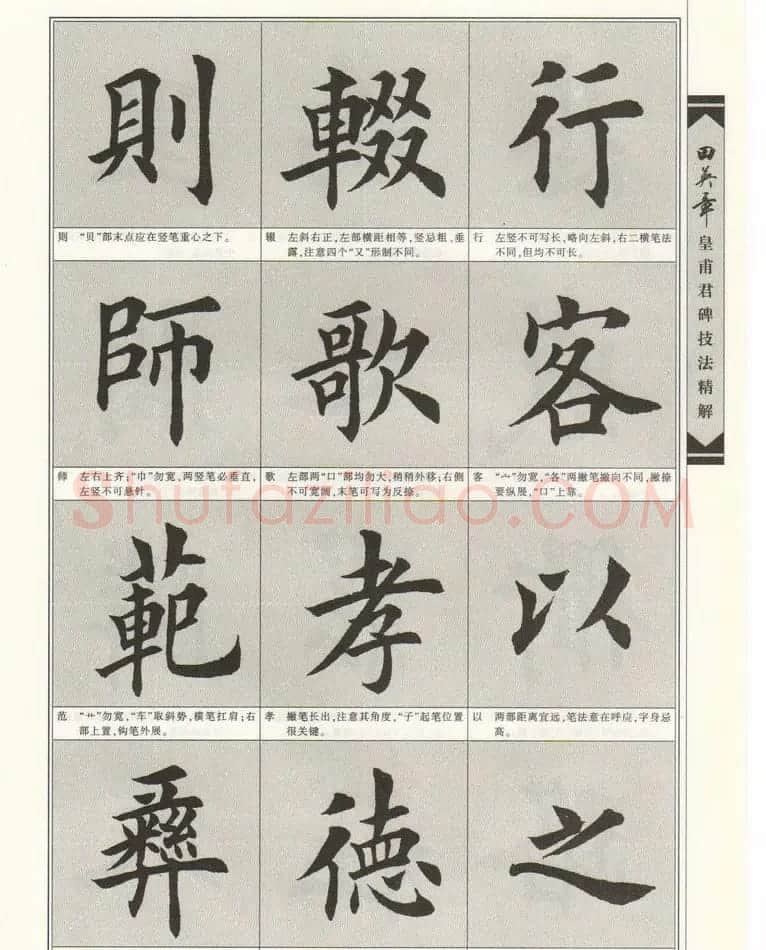 則 輟 行
则 “贝”部末点应在竖笔重心之下。
辍 左斜右正,左部横距相等,竖忌粗、垂
露,注意四个“又”形制不同。
行 左竖不可写长,略向左斜,右二横笔法
不同,但均不可长。
師 歌 客
师 左右上齐;“巾”勿宽,两竖笔必垂直,
左竖不可悬针。
歌 左部两“口”部均勿大,稍稍外移;右侧
不可宽阔,末笔可写为反捺。
客 “宀”勿宽,“各”两撇笔撇向不同,撇捺
要纵展,“口”上靠。
範 孝 以
范 “艹”勿宽,“车”取斜势,横笔扛肩;右
部上置,钩笔外展。
孝 撇笔长出,注意其角度,“子”起笔位置
很关键。
以 两部距离宜远,笔法意在呼应,字身忌
高。
彝 德 之
田英章 皇甫君碑技法精解
Shufaziliao.COM